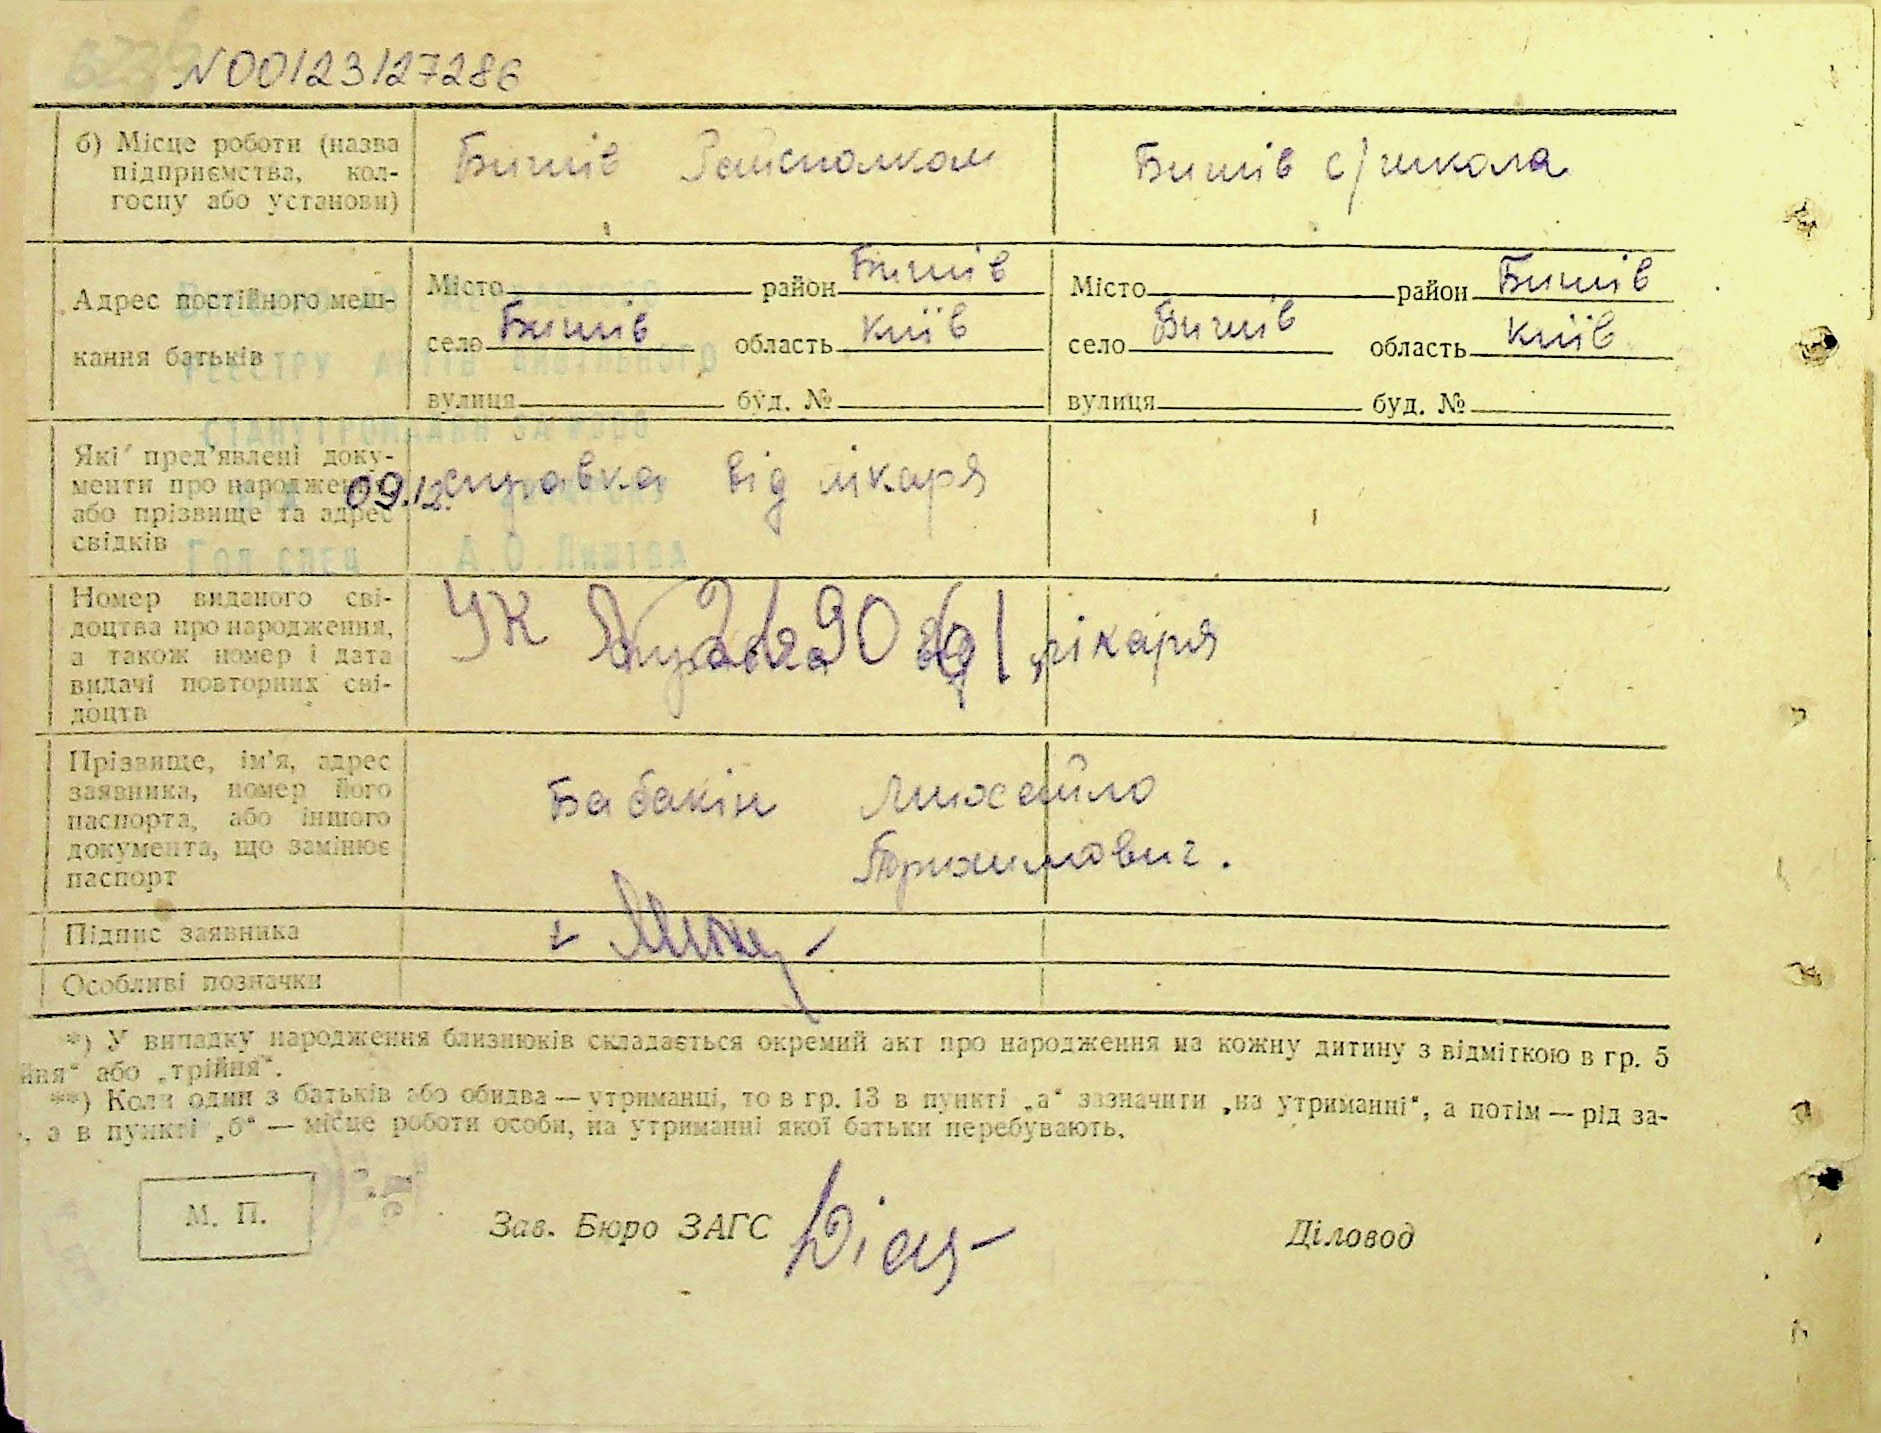 N00123127286
б) Місце роботи (назва
підприємства, кол-
госпу або установи)
Бишів Райсполком
Бишів с/школа
Адрес постійного меш-
кання батьків
Місто район Бишів
село Бишів область Київ
вулиця буд. №
Місто район Бишів
село Бишів область Київ
вулиця буд. №
РЕЄСТРУ АКТІВ ЦИВІЛЬНОГО
09.12.
Гол спец А.О.
Які пред'явлені доку-
менти про народження
або прізвище та адрес
свідків
справка від лікаря
Номер виданого сві-
доцтва про народження,
а також номер і дата
видачі повторних сві-
доцтв
УК
лікаря
Прізвище, ім'я, адрес
заявника, номер його
паспорта, або іншого
документа, що замінює
паспорт
Бабакін Михайло
Підпис заявника
Особливі позначки
*) У випадку народження близнюків складається окремий акт про народження на кожну дитину з відміткою в гр. 5
йня" або „трійня".
**) Коли один з батьків або обидва — утриманці, то в гр. 13 в пункті „а" зазначити „на утриманні", а потім — рід за-
, а в пункті „б" — місце роботи особи, на утриманні якої батьки перебувають.
М. П.
Зав. Бюро ЗАГС
Діловод